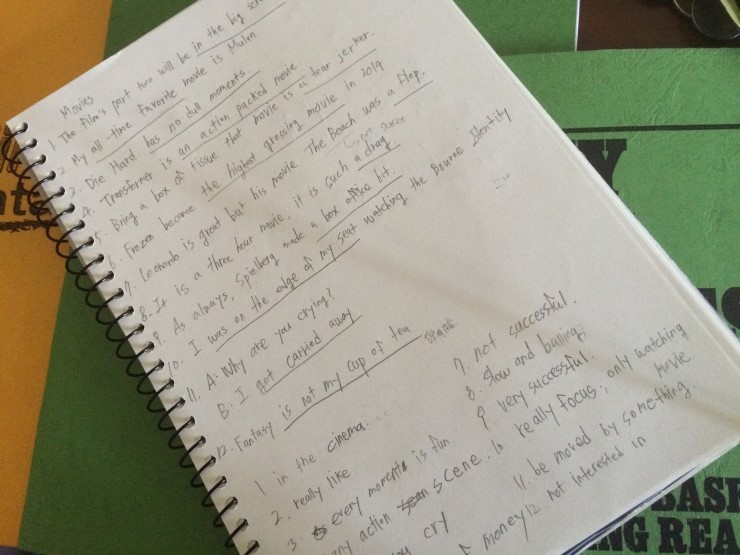 Movies
1. The film's part two will be in the big
2. My all-time favorite movie is Mulan
3. Die Hard has no dull moments.
4. Transformer is an action packed movie
5. Bring a box of tissue that movie is a tear jerker.
6. Frozen become the highest grossing movie in 2014
7. Leonardo is great but his movie The Beach was a flop.
8. It is a three hour movie, it is such a drag
9. As always, Spielberg made a box office hit.
10. I was on the edge of my seat watching the Bourne Identity
11. A: Why are you crying?
B: I got carried away
12. Fantasy is not my cup of tea
1 in the cinema.
2. really like
3 every moments is fun
any action scene.
cry
of money
7. not successful.
8. slow and
9. very successful.
10 really focus, only watching movie
11. be moved by something.
12 not interested in
BASE
NG REA